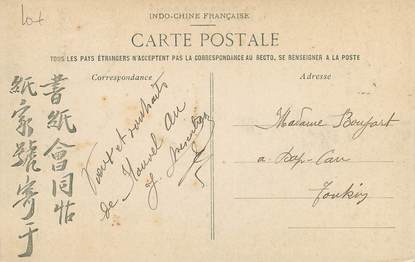 lot
INDO-CHINE FRANÇAISE
CARTE POSTALE
TOUS LES PAYS ÉTRANGERS N'ACCEPTENT PAS LA CORRESPONDANCE AU RECTO, SE RENSEIGNER A LA POSTE
Correspondance
Adresse
書紙會同帖
紙家號寄于
Vœux et souhaits
de Nouvel An
Madame
a
Tonkin